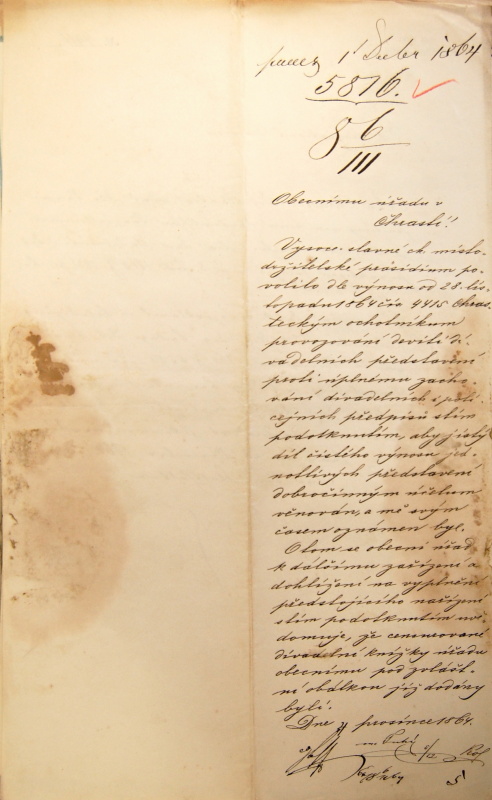 1864
5816.
8 6/III
Obecnímu úřadu v
Chrasti!
Vysoce slavné ck. místo-
držitelské präsidium po-
volilo dle výnosu od 28. lis-
topadu 1864 čís 4415 Chras-
teckým ochotníkum
provozování devíti di-
vadelních představení
proti úplnému zacho-
vání divadelních i poli-
cejních předpisů s tím
podotknutím, aby jistý
díl čistého výnosu jed-
notlivých představení
dobročinným účelum
věnován, a mě svým
časem oznámen byl.
O tom se obecní úřad
k dalšímu zařízení a
dohlížení na vyplnění
předstojícího nařízení
s tím podotknutím uvě-
domuje, že censurované
divadelní knížky úřadu
obecnímu pod zvlášt-
ní obálkou již dodány
byli.
Dne prosince 1864.